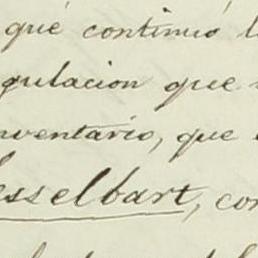 que continuó l
gulacion que
nventario, que
esselbart, con